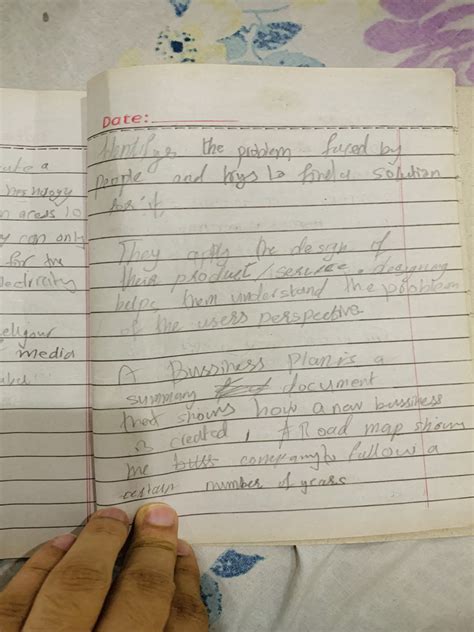 uate a
technology
n areas to
y can only
for the
electricity
sell your
media
label
Date:
Identifys the problem faced by
people and trys to find a solution
for it,
They apply the design of
their product/service. designing
helps them understand the problem
of the users perspective.
A Bussiness Plan is a
summary document
that shows how a new bussiness
is created, A Road map shows
the buss company to follow a
certain number of years